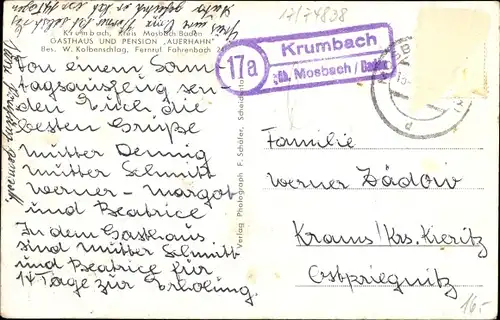 17/74838
Krumbach, Kreis Mosbach/Baden
GASTHAUS UND PENSION „AUERHAHN"
Bes. W. Kalbenschlag, Fernruf Fahrenbach
17a
Krumbach
üb. Mosbach / Baden
Von einem Sonn-
tagsausflug sen-
den Euch die
besten Grüße
Mutter Dennig
Mutter Schmitt
Werner - Margot
und Beatrice
In dem Gasthaus
sind Mutter Schmitt
und Beatrice für
14 Tage zur Erholung.
Verlag Photograph F. Schäfer, Scheidental
Familie
Werner Zädow
Krams/Krs. Kieritz
Ostpriegnitz
16.-